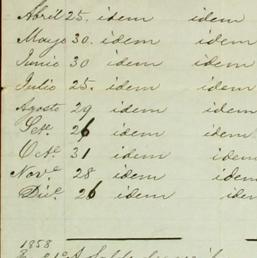 Abril 25. idem idem
Mayo 30. idem idem
Junio 30 idem idem
Julio 25. idem idem
Agosto 29 idem idem
Sete. 26 idem idem
Octe. 31 idem idem
Nove. 28 idem idem
Dice. 26 idem idem
1858